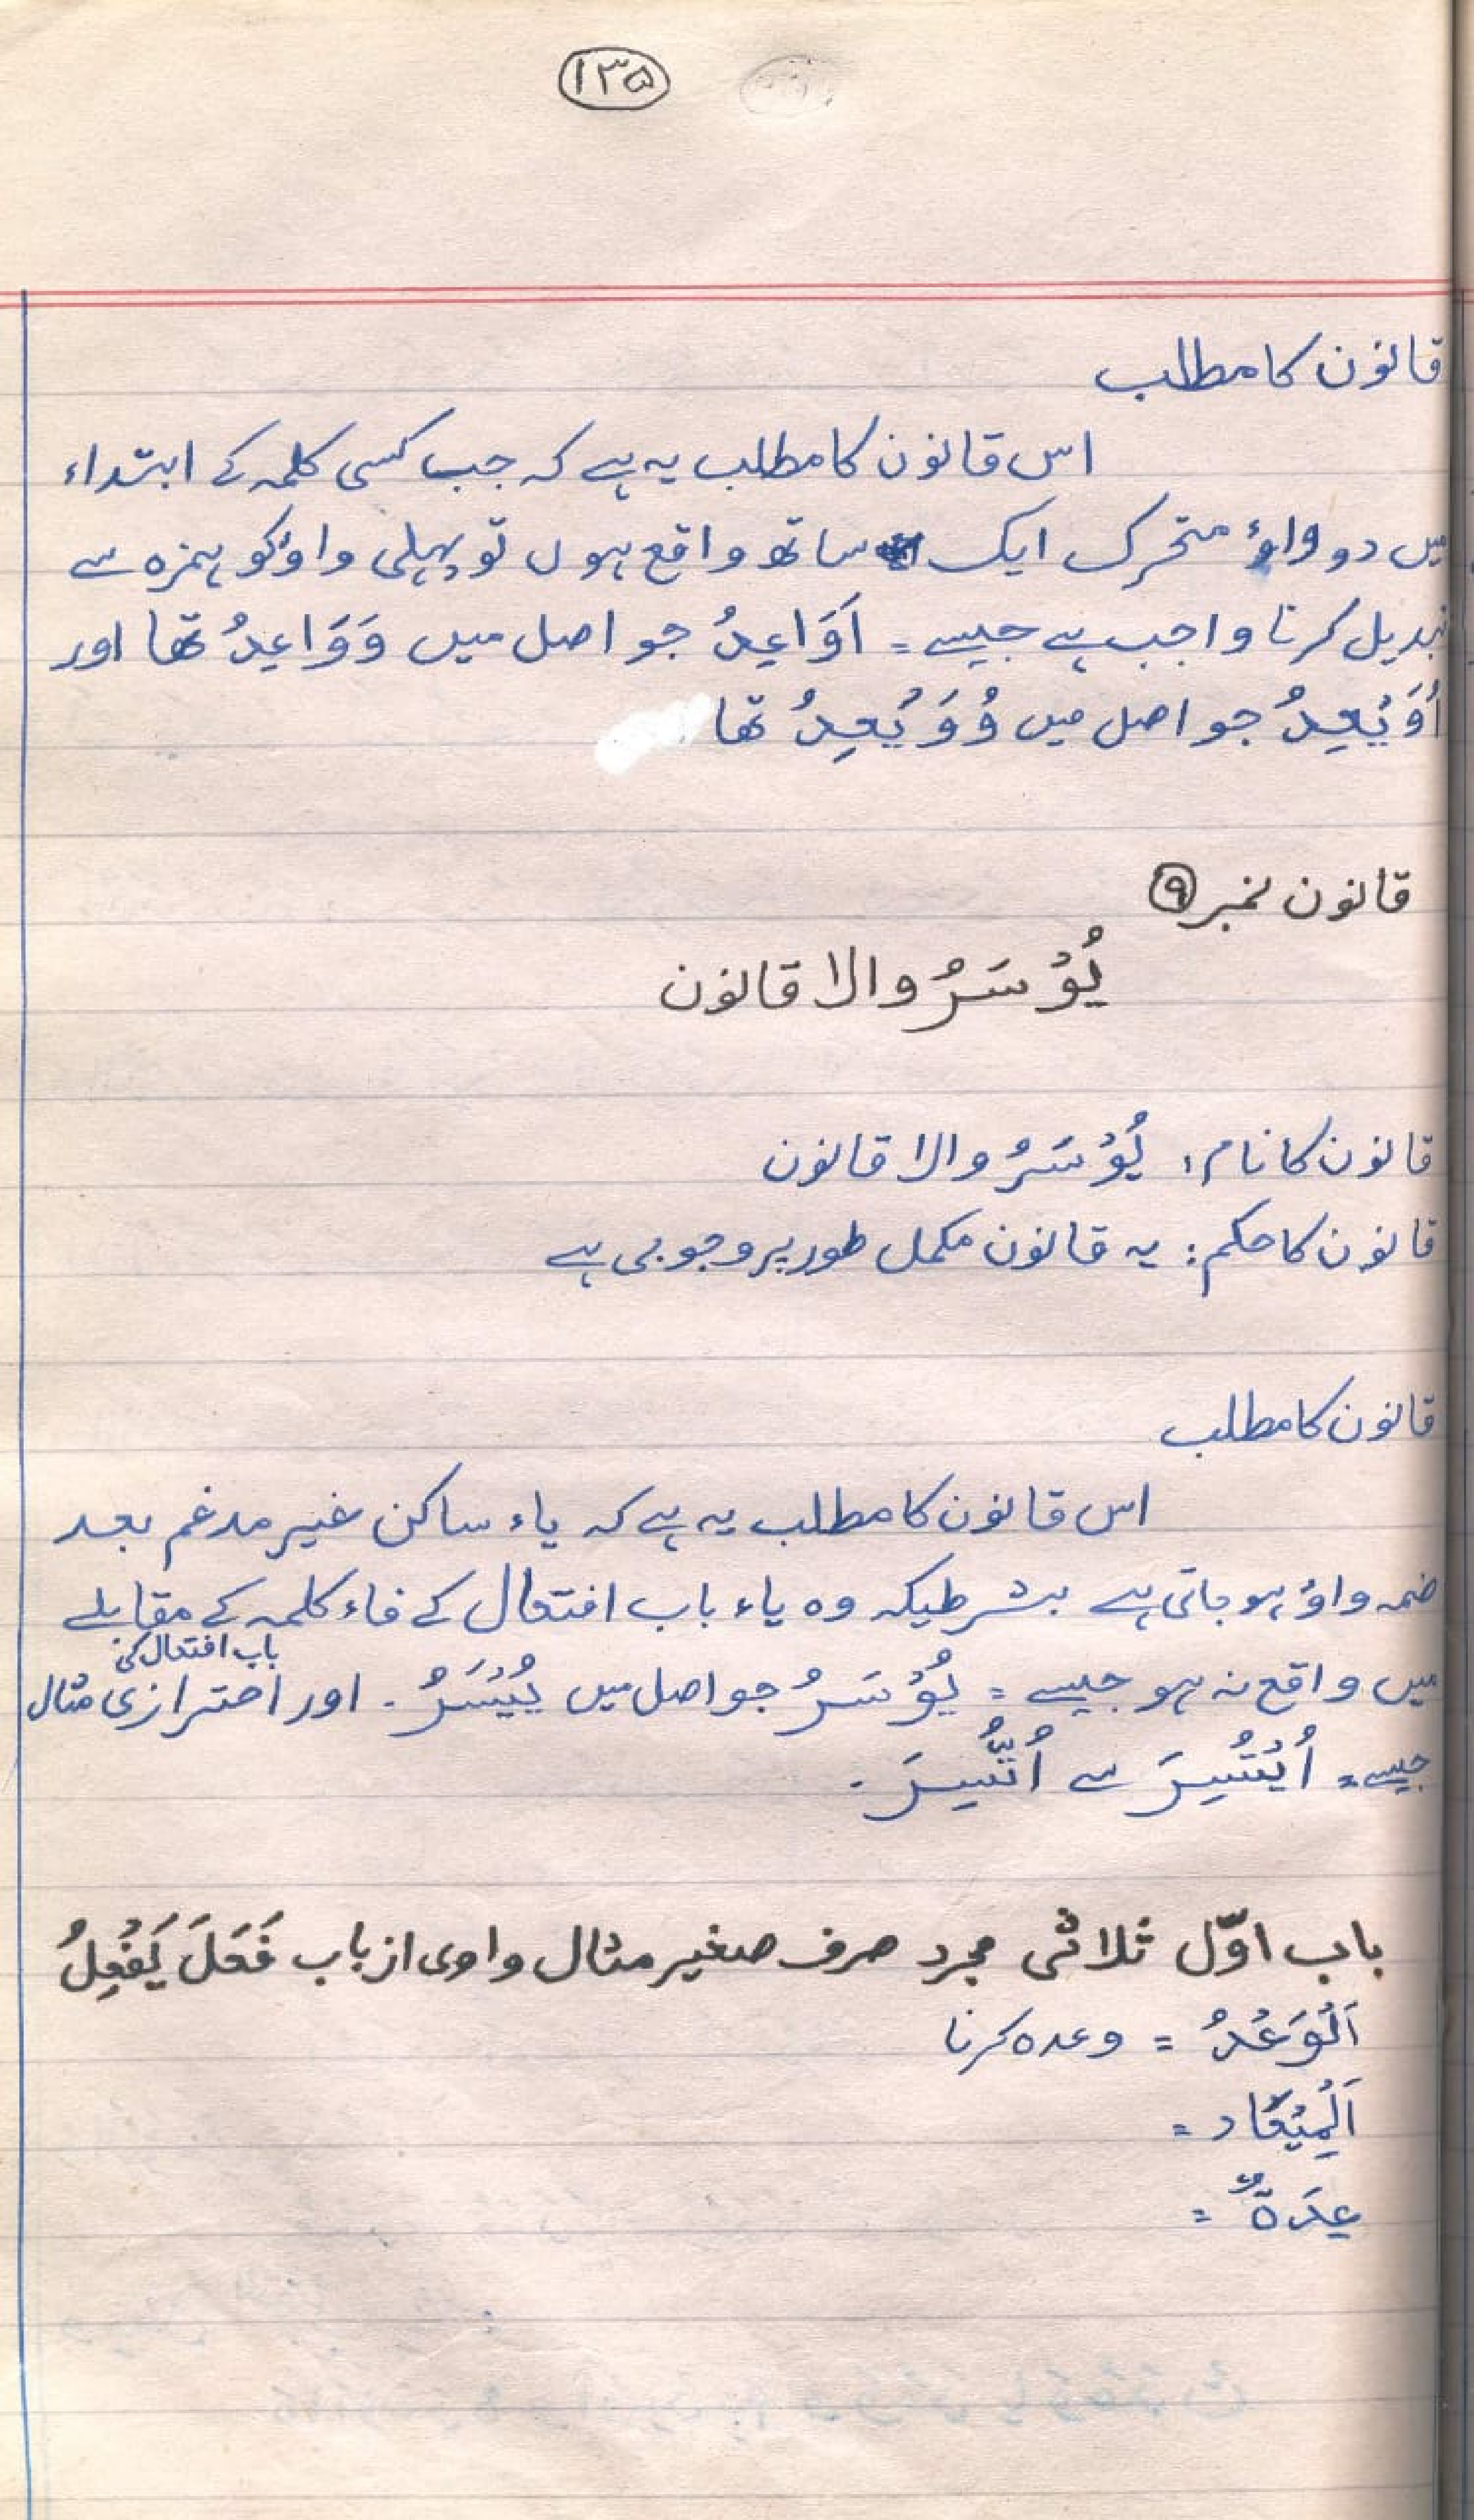 ۱۳۵
قانون کا مطلب
اس قانون کا مطلب یہ ہے کہ جب کسی کلمہ کے ابتداء
میں دو واؤ متحرک ایک ساتھ واقع ہوں تو پہلی واؤ کو ہمزہ سے
تبدیل کرنا واجب ہے جیسے = اَوَاعِدُ جو اصل میں وَوَاعِدُ تھا اور
اُوَیْعِدُ جو اصل میں وُوَیْعِدُ تھا
قانون نمبر ۹
یُوْسَرُ والا قانون
قانون کا نام: یُوْسَرُ والا قانون
قانون کا حکم: یہ قانون مکمل طور پر وجوبی ہے
قانون کا مطلب
اس قانون کا مطلب یہ ہے کہ یاء ساکن غیر مدغم بعد
ضمہ واؤ ہو جاتی ہے بشرطیکہ وہ یاء باب افتعال کے فاء کلمہ کے مقابلے
میں واقع نہ ہو جیسے = یُوْسَرُ جو اصل میں یُیْسَرُ۔ اور احترازی باب افتعال کی مثال
جیسے = اُیْتُسِرَ سے اُتُّسِرَ۔
باب اوّل ثلاثی مجرد صرف صغیر مثال واوی از باب فَعَلَ یَفْعِلُ
اَلْوَعْدُ = وعدہ کرنا
اَلْمِیْعَاد =
عِدَۃٌ =